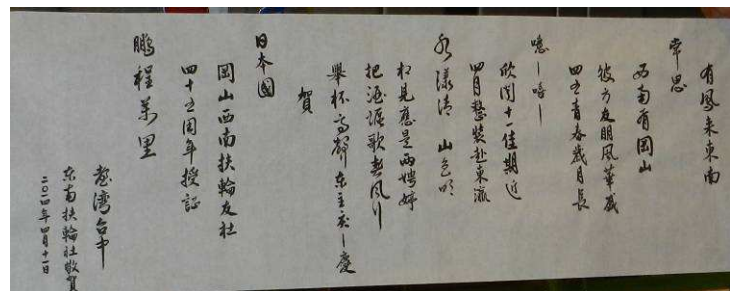 有鳳来東南
常思
西南有岡山
彼方友朋風華盛
四五青春歲月長
噫ー嘻ー
欣聞十一佳期近
四月整裝赴東瀛
水漾清 山色明
相見應是兩娉婷
把酒謳歌春風行
舉杯高聲東主ー慶
賀
日本國
岡山西南扶輪友社
四十五周年授証
鵬程萬里
臺灣台中
東南扶輪社敬賀
二〇一四年四月十一日